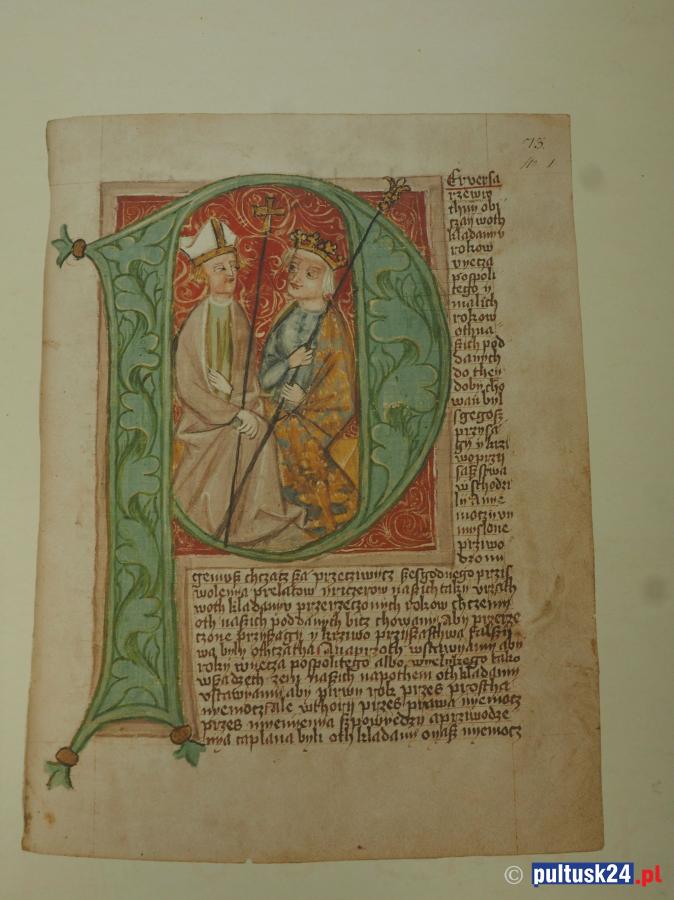 73.
Er versa
rzewio
thny obi
czay woth
kladanyv
rokow
vyecza
pospoli
tego y
malich
rokow
oth na
schich pod
danych
do they
doby cho
wan byl
sgegosz
przysa
gy y krzi
woprzi
saszstwa
wschodzi
ly A nye
moczy vy
myslone
przywo
dzony
chczacz sza przecziwycz
wolenya prelatow y riczerow naschich taky vrzach
woth kladanyv przerzeczonych rokow chczemy
oth naschich poddanych bicz chowany Aby przerze
czone przysagy y krziwo przysasthwa
wa byly othczatha A naprzoth wstawyamy aby
roky wyecza pospolitego albo wyelyszego tako
w kazdech zemy naschich napothem othkladamy
vstawyamy aby pirwy rok przes prostha
nyemocz ale wthory przes prawa nyemocz
przes a prziwodze
nya caplana byli oth kladany o yasz nyemocz
© pultusk24.pl